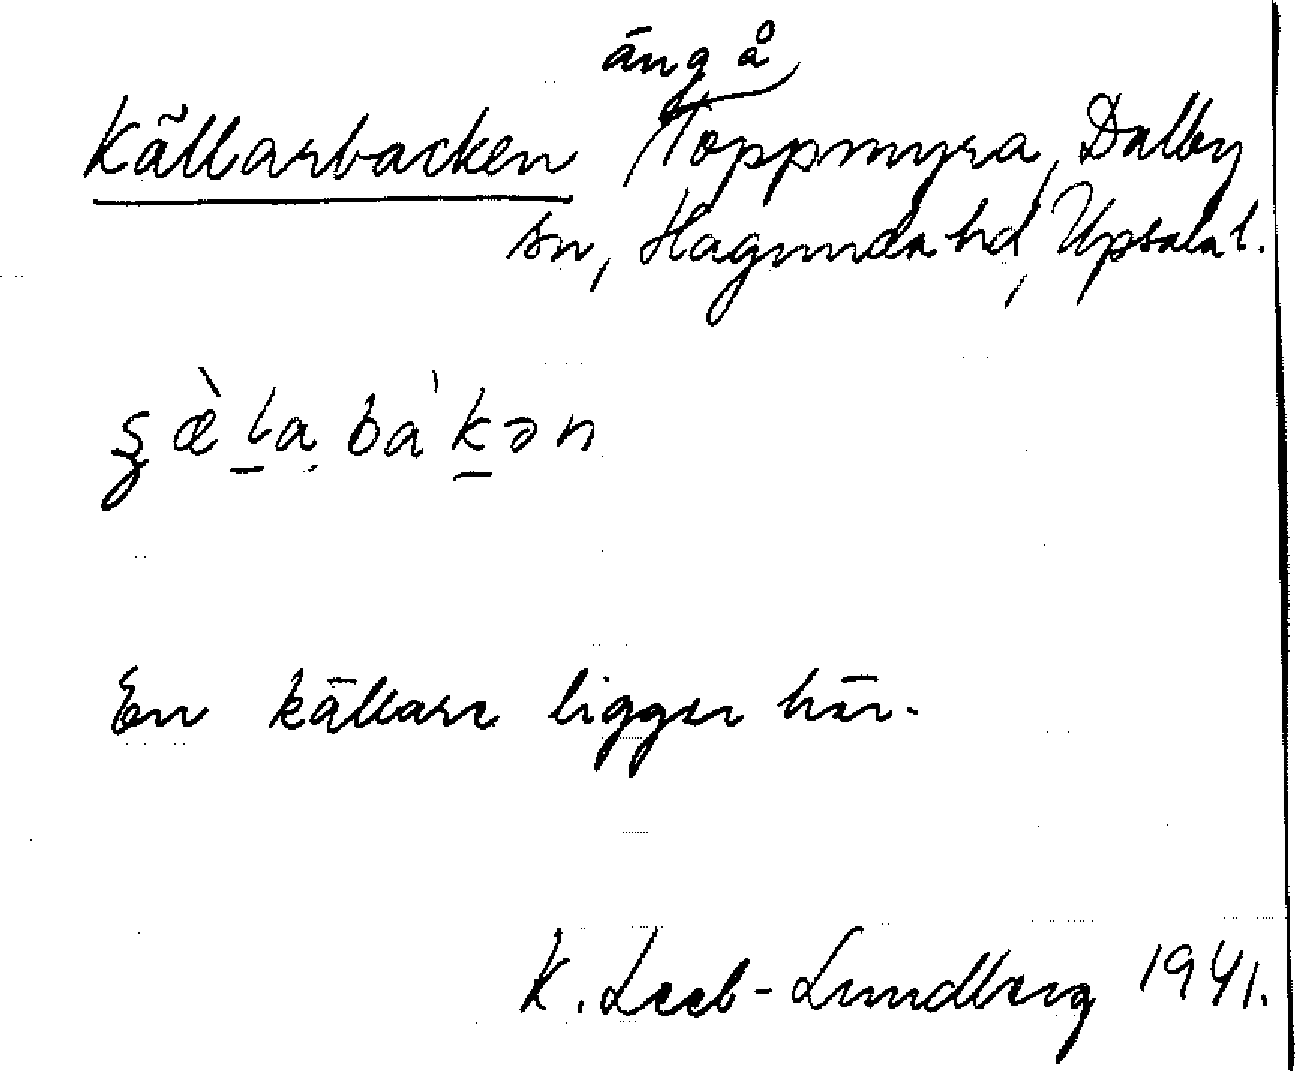 äng å
Källarbacken Toppmyra, Dalby
sn, Hagunda hd, Upsala l.
En källare ligger här.
K. Leeb-Lundberg 1941.